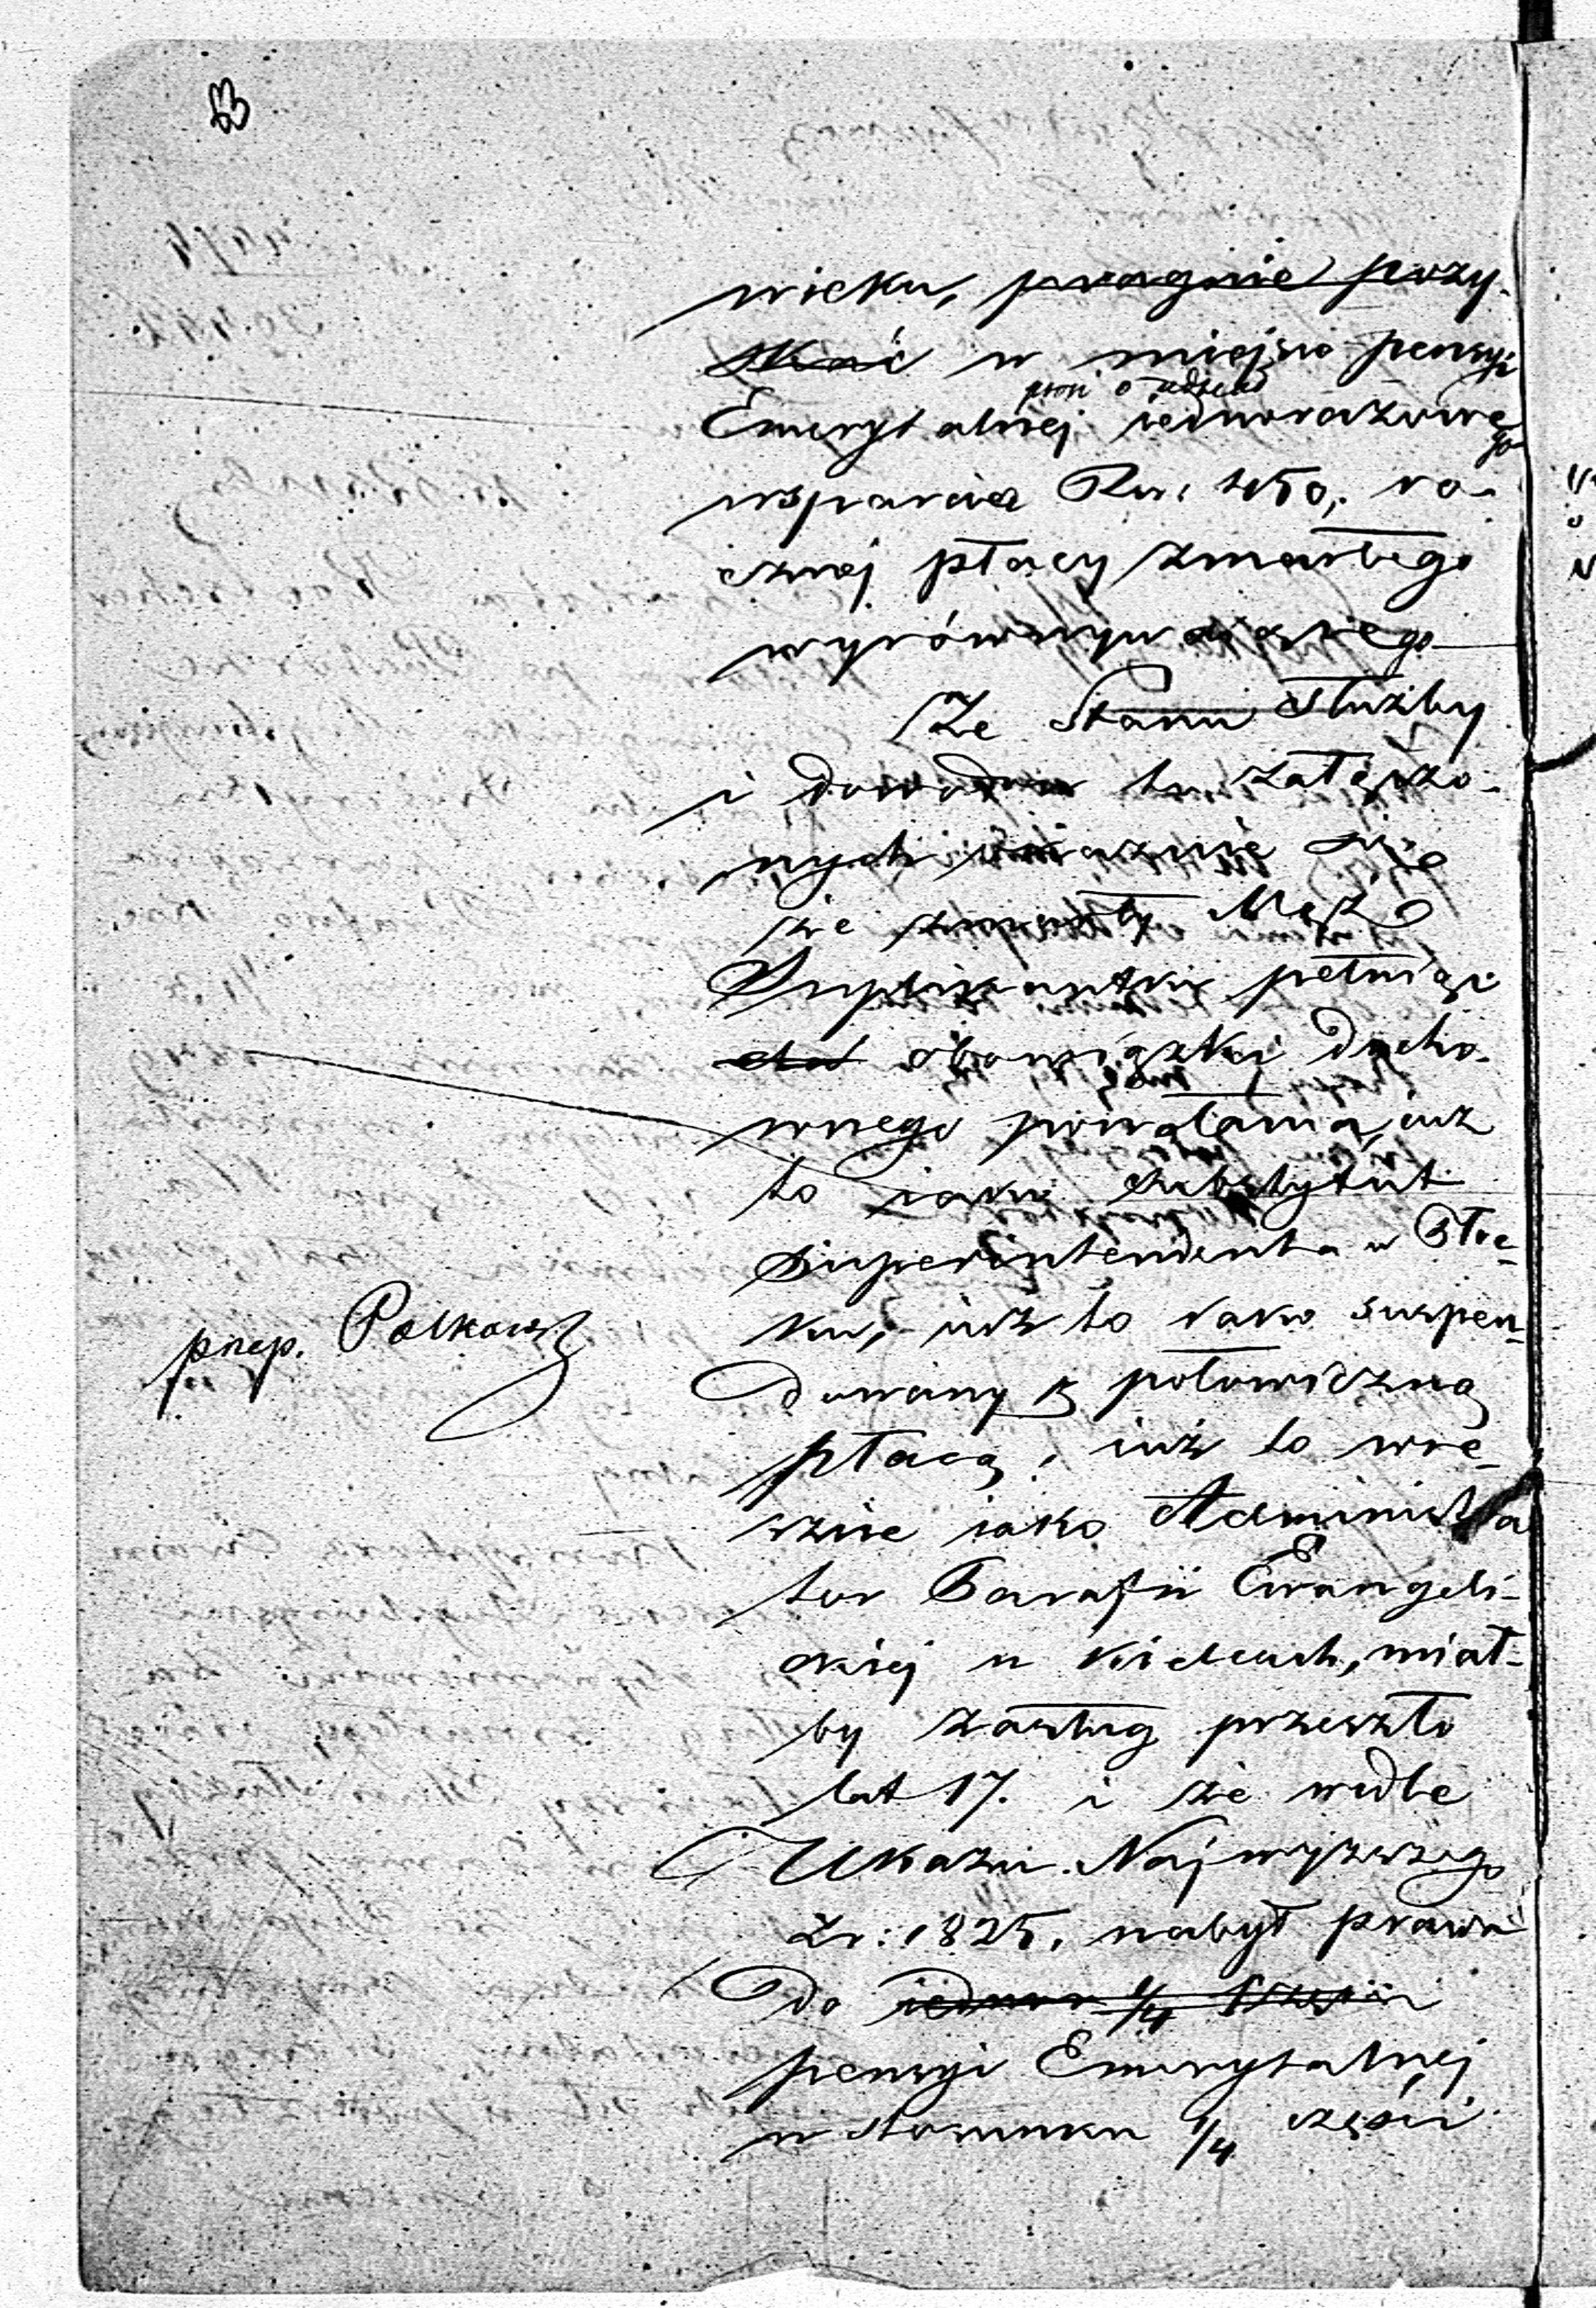 wieku, pragnie pozy-
skać w miejsce pensyi
prosi o udziele
Emerytalnej iednorazowe
go
wsparcia Rsr. 450, ro-
cznej płacy zmarłego
wyrównywaiącego
Ze Stanu Służby
i dowodów tu załączo-
nych okazuie się
że zmarły Mąż
Suplikantki pełniąc
obowiązki ducho-
wnego powołania, iuż
to iako Substytut
Superintendenta w Płoc-
ku, iuż to iako suspen-
dowany z połowiczną
płacą, iuż to wre-
szcie iako Administra
tor Parafii Ewangeli-
ckiej w Kielcach, miał-
by zasług przeszło
lat 17. i że wedle
Ukazu Najwyższego
z r: 1825, nabył prawa
do iednej 1/4 części
pensyi Emerytalnej
w stosunku 1/4 części
przep. Polkowski